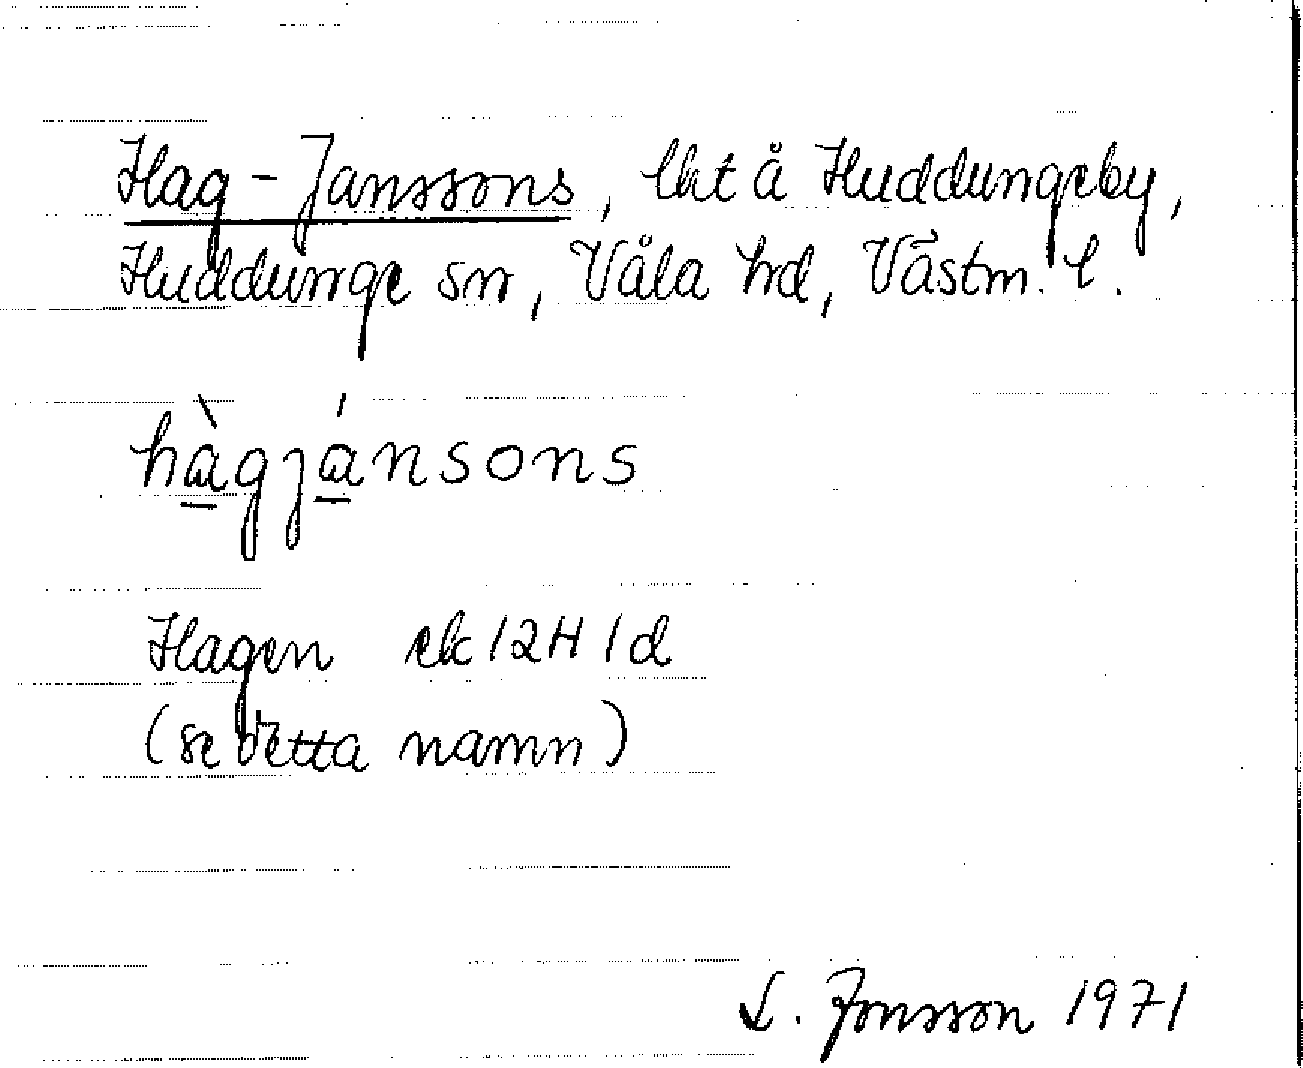 Hag-Janssons, lht å Huddungeby,
Huddunge sn, Våla hd, Västm. l.
hàgjánsons
Hagen ek 12H 1d
(se detta namn)
L. Jonsson 1971